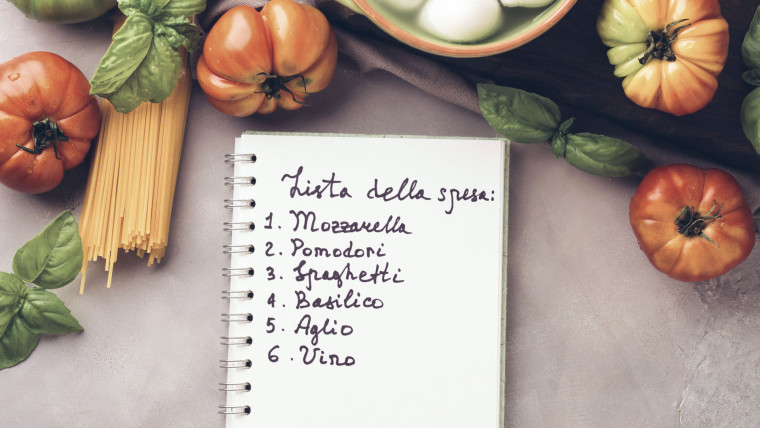 Lista della spesa:
1. Mozzarella
2. Pomodori
3. Spaghetti
4. Basilico
5. Aglio
6. Vino